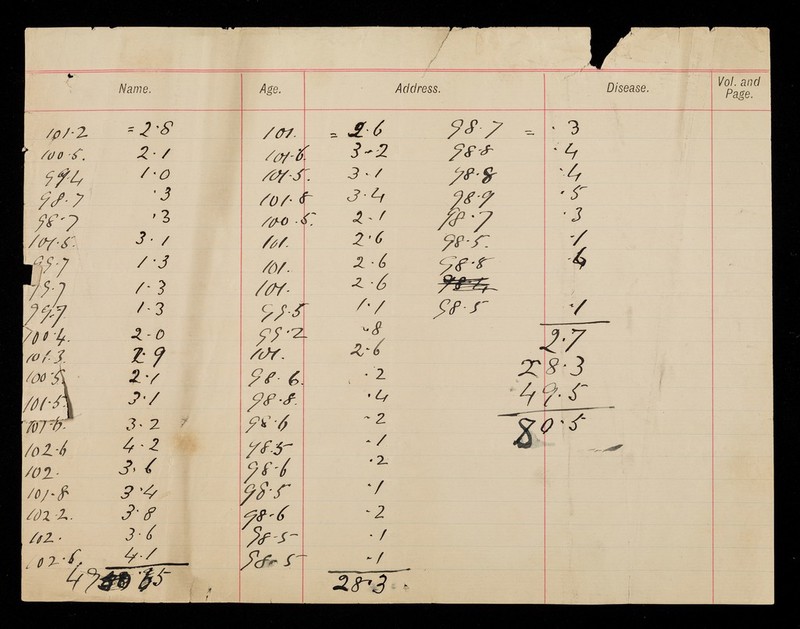 Name. Age. Address. Disease. Vol. and Page.
101.2 = 2.8 101. = 2.6 98.7 = .3
100.5. 2.1 101.6 3.2 98.8 .4
99.4 1.0 101.5 3.1 98.8 .4
98.7 .3 101.8 3.4 98.9 .5
98.7 .3 100.5. 2.1 98.7 .3
101.5. 3.1 101. 2.6 98.5. .1
99.7 1.3 101. 2.6 98.8 .6
99.7 1.3 101. 2.6
99.7 1.3 99.5 1.1 98.5 .1
100.4. 2.0 99.2 .8 2.7
101.3. 2.9 101. 2.6 28.3
100.5 2.1 98.6. .2 49.5
101.5. 3.1 98.8. .4 80.5
101.6. 3.2 98.6 .2
102.6 4.2 98.5 .1
102. 3.6 98.6 .2
101.8 3.4 98.5 .1
102.2. 3.8 98.6 .2
102. 3.6 98.5 .1
102.6. 4.1 98.5 .1
49 28.3